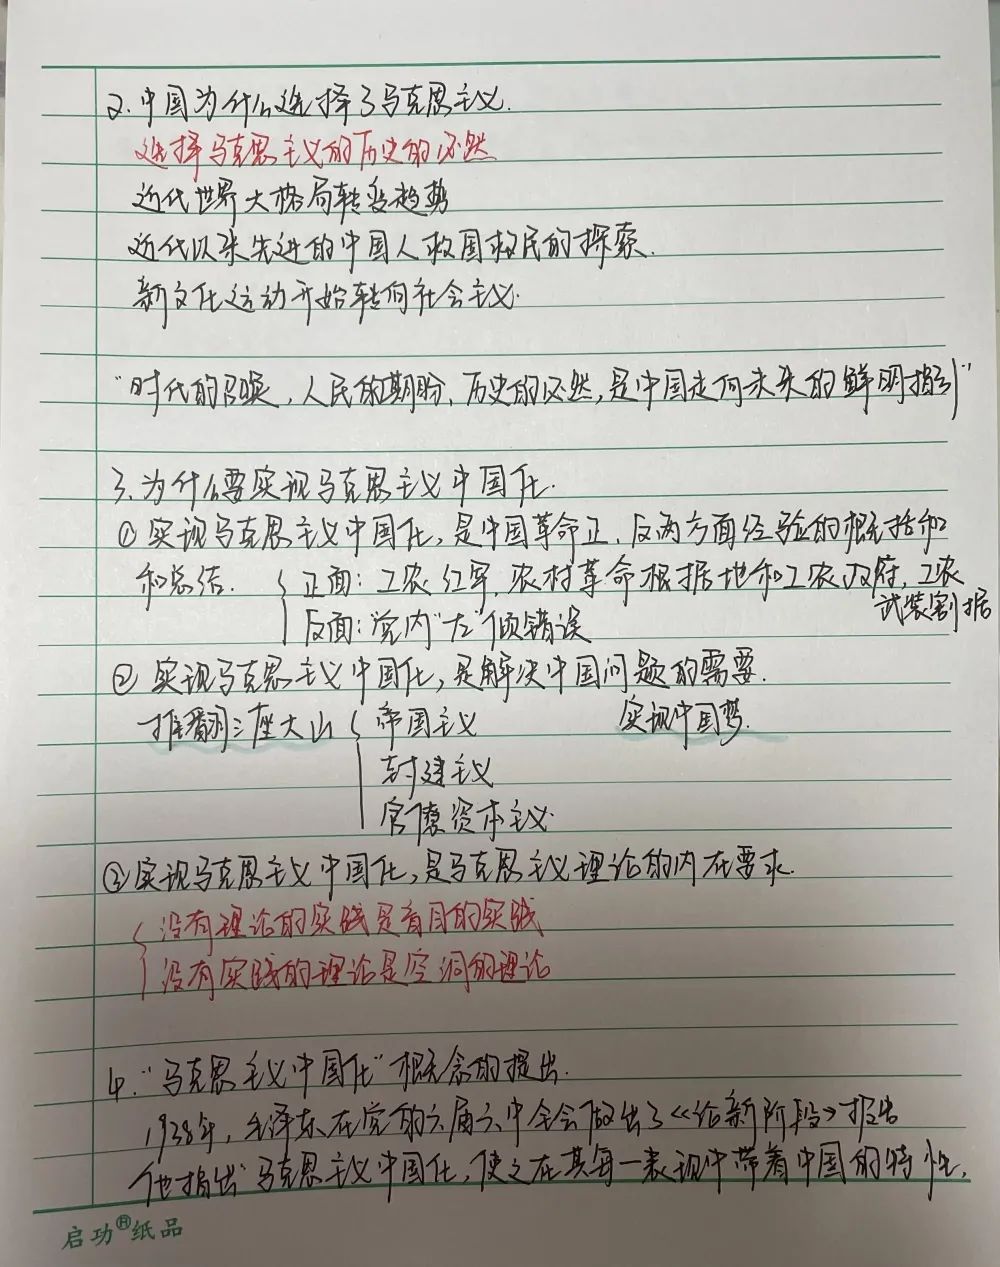 2.中国为什么选择了马克思主义.
选择马克思主义的历史的必然
近代世界大格局转变趋势
近代以来先进的中国人救国救民的探索.
新文化运动开始转向社会主义.
"时代的召唤,人民的期盼、历史的必然,是中国走向未来的鲜明指引"
3.为什么要实现马克思主义中国化.
①实现马克思主义中国化,是中国革命正、反两方面经验的概括和
和总结. { 正面:工农红军,农村革命根据地和工农政府,工农
武装割据
反面:党内"左"倾错误
② 实现马克思主义中国化,是解决中国问题的需要.
推翻三座大山 { 帝国主义 实现中国梦.
封建主义
官僚资本主义.
③实现马克思主义中国化,是马克思主义理论的内在要求.
{ 没有理论的实践是盲目的实践
没有实践的理论是空洞的理论
4."马克思主义中国化"概念的提出.
1938年,毛泽东在党的六届六中全会做出了《论新阶段》报告
他指出"马克思主义中国化,使之在其每一表现中带着中国的特性,
启功®纸品